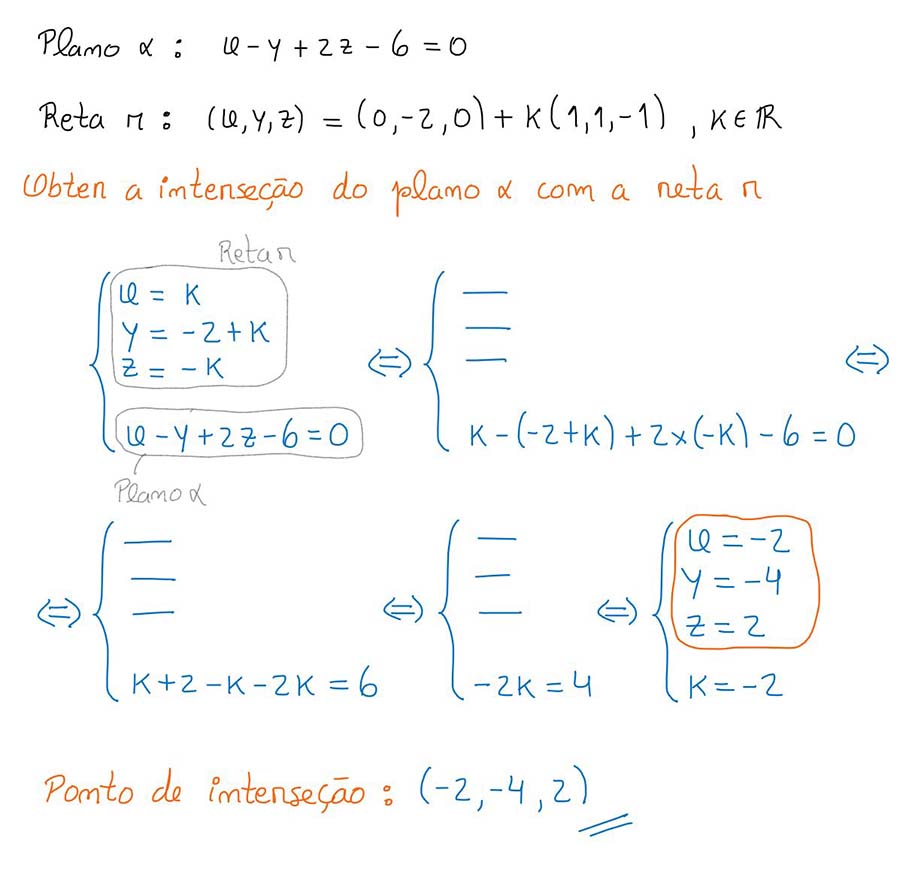 Plano α : x - y + 2z - 6 = 0
Reta r : (x, y, z) = (0, -2, 0) + K(1, 1, -1) , K ∈ ℝ
Obter a interseção do plano α com a reta r
Reta r
x = K
y = -2 + K
z = -K
x - y + 2z - 6 = 0
Plano α
⇔
—
—
—
K - (-2 + K) + 2 × (-K) - 6 = 0
⇔
⇔
—
—
—
K + 2 - K - 2K = 6
⇔
—
—
—
-2K = 4
⇔
x = -2
y = -4
z = 2
K = -2
Ponto de interseção : (-2, -4, 2)